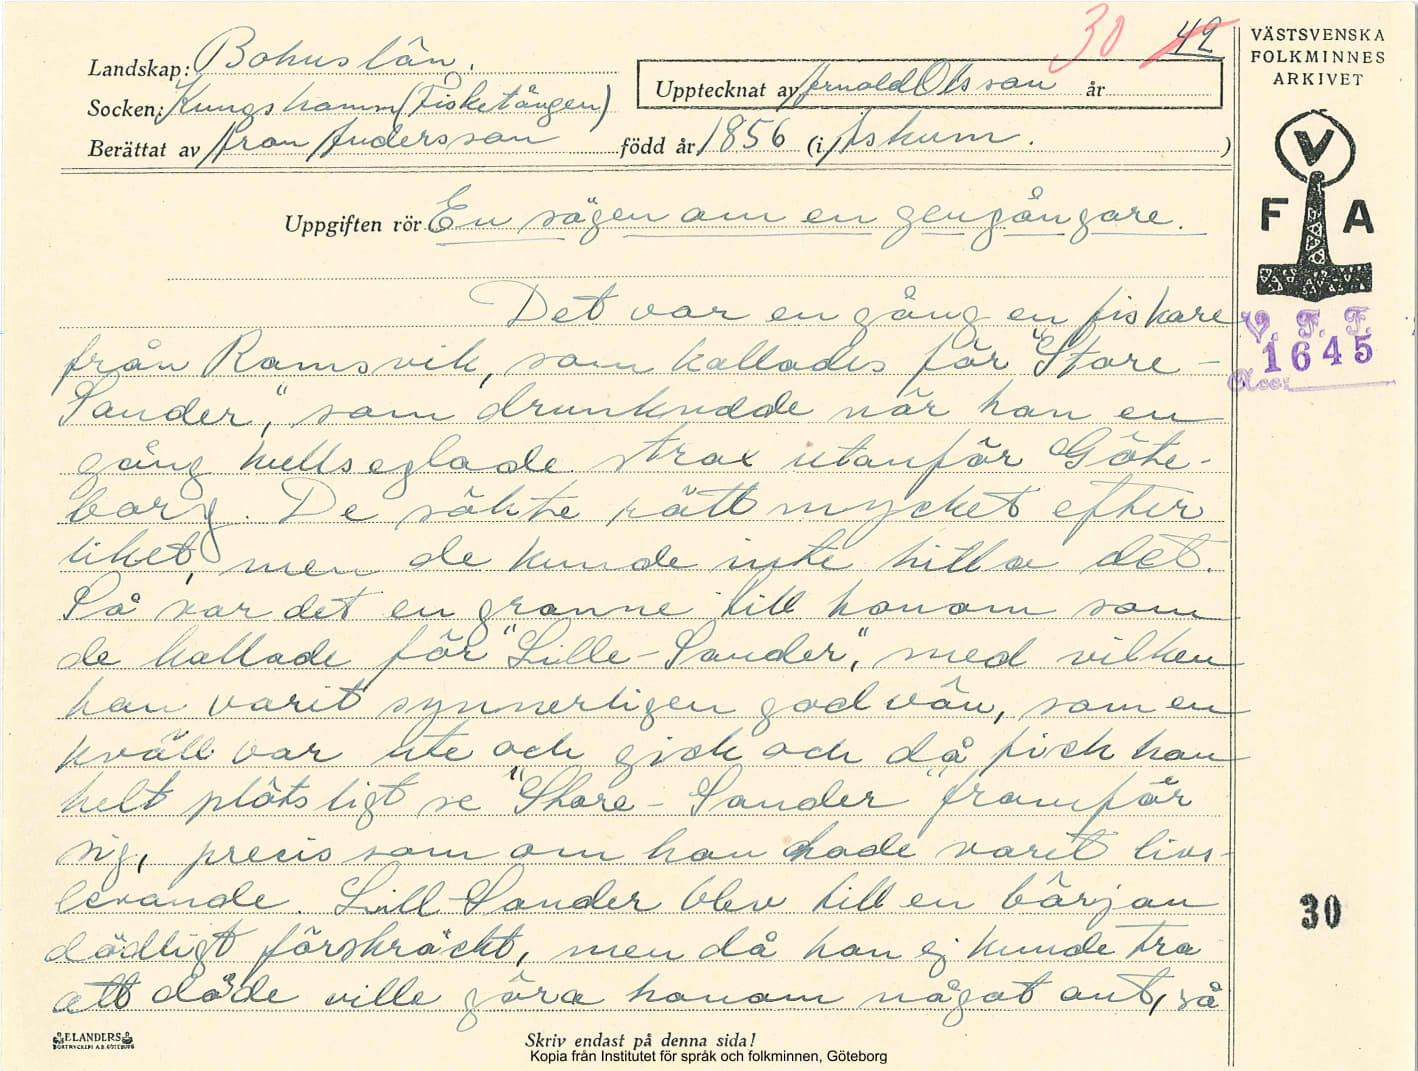 30 42
VÄSTSVENSKA
FOLKMINNES
ARKIVET
Landskap: Bohuslän.
Upptecknat av Arnold Olsson år
Socken: Kungshamn (Fisketången)
Berättat av Aron Andersson född år 1856 (i Askum. )
V
F A
Uppgiften rör En sägen om en gengångare.
Det var en gång en fiskare
från Ramsvik, som kallades för "Store-
Sander," som drunknade när han en
gång kullseglade strax utanför Göte-
borg. De sökte rätt mycket efter
liket, men de kunde inte hitta det.
Så var det en granne till honom som
de kallade för "Lille-Sander", med vilken
han varit synnerligen god vän, som en
kväll var ute och gick och då fick han
helt plötsligt se "Store-Sander" framför
sig, precis som om han hade varit livs-
levande. Lill-Sander blev till en början
dödligt förskräckt, men då han ej kunde tro
att döde ville göra honom något ont, så
V. F. F.
1645
Acc.
30
ELANDERS
BOKTRYCKERI A.B. GÖTEBORG
Skriv endast på denna sida!
Kopia från Institutet för språk och folkminnen, Göteborg